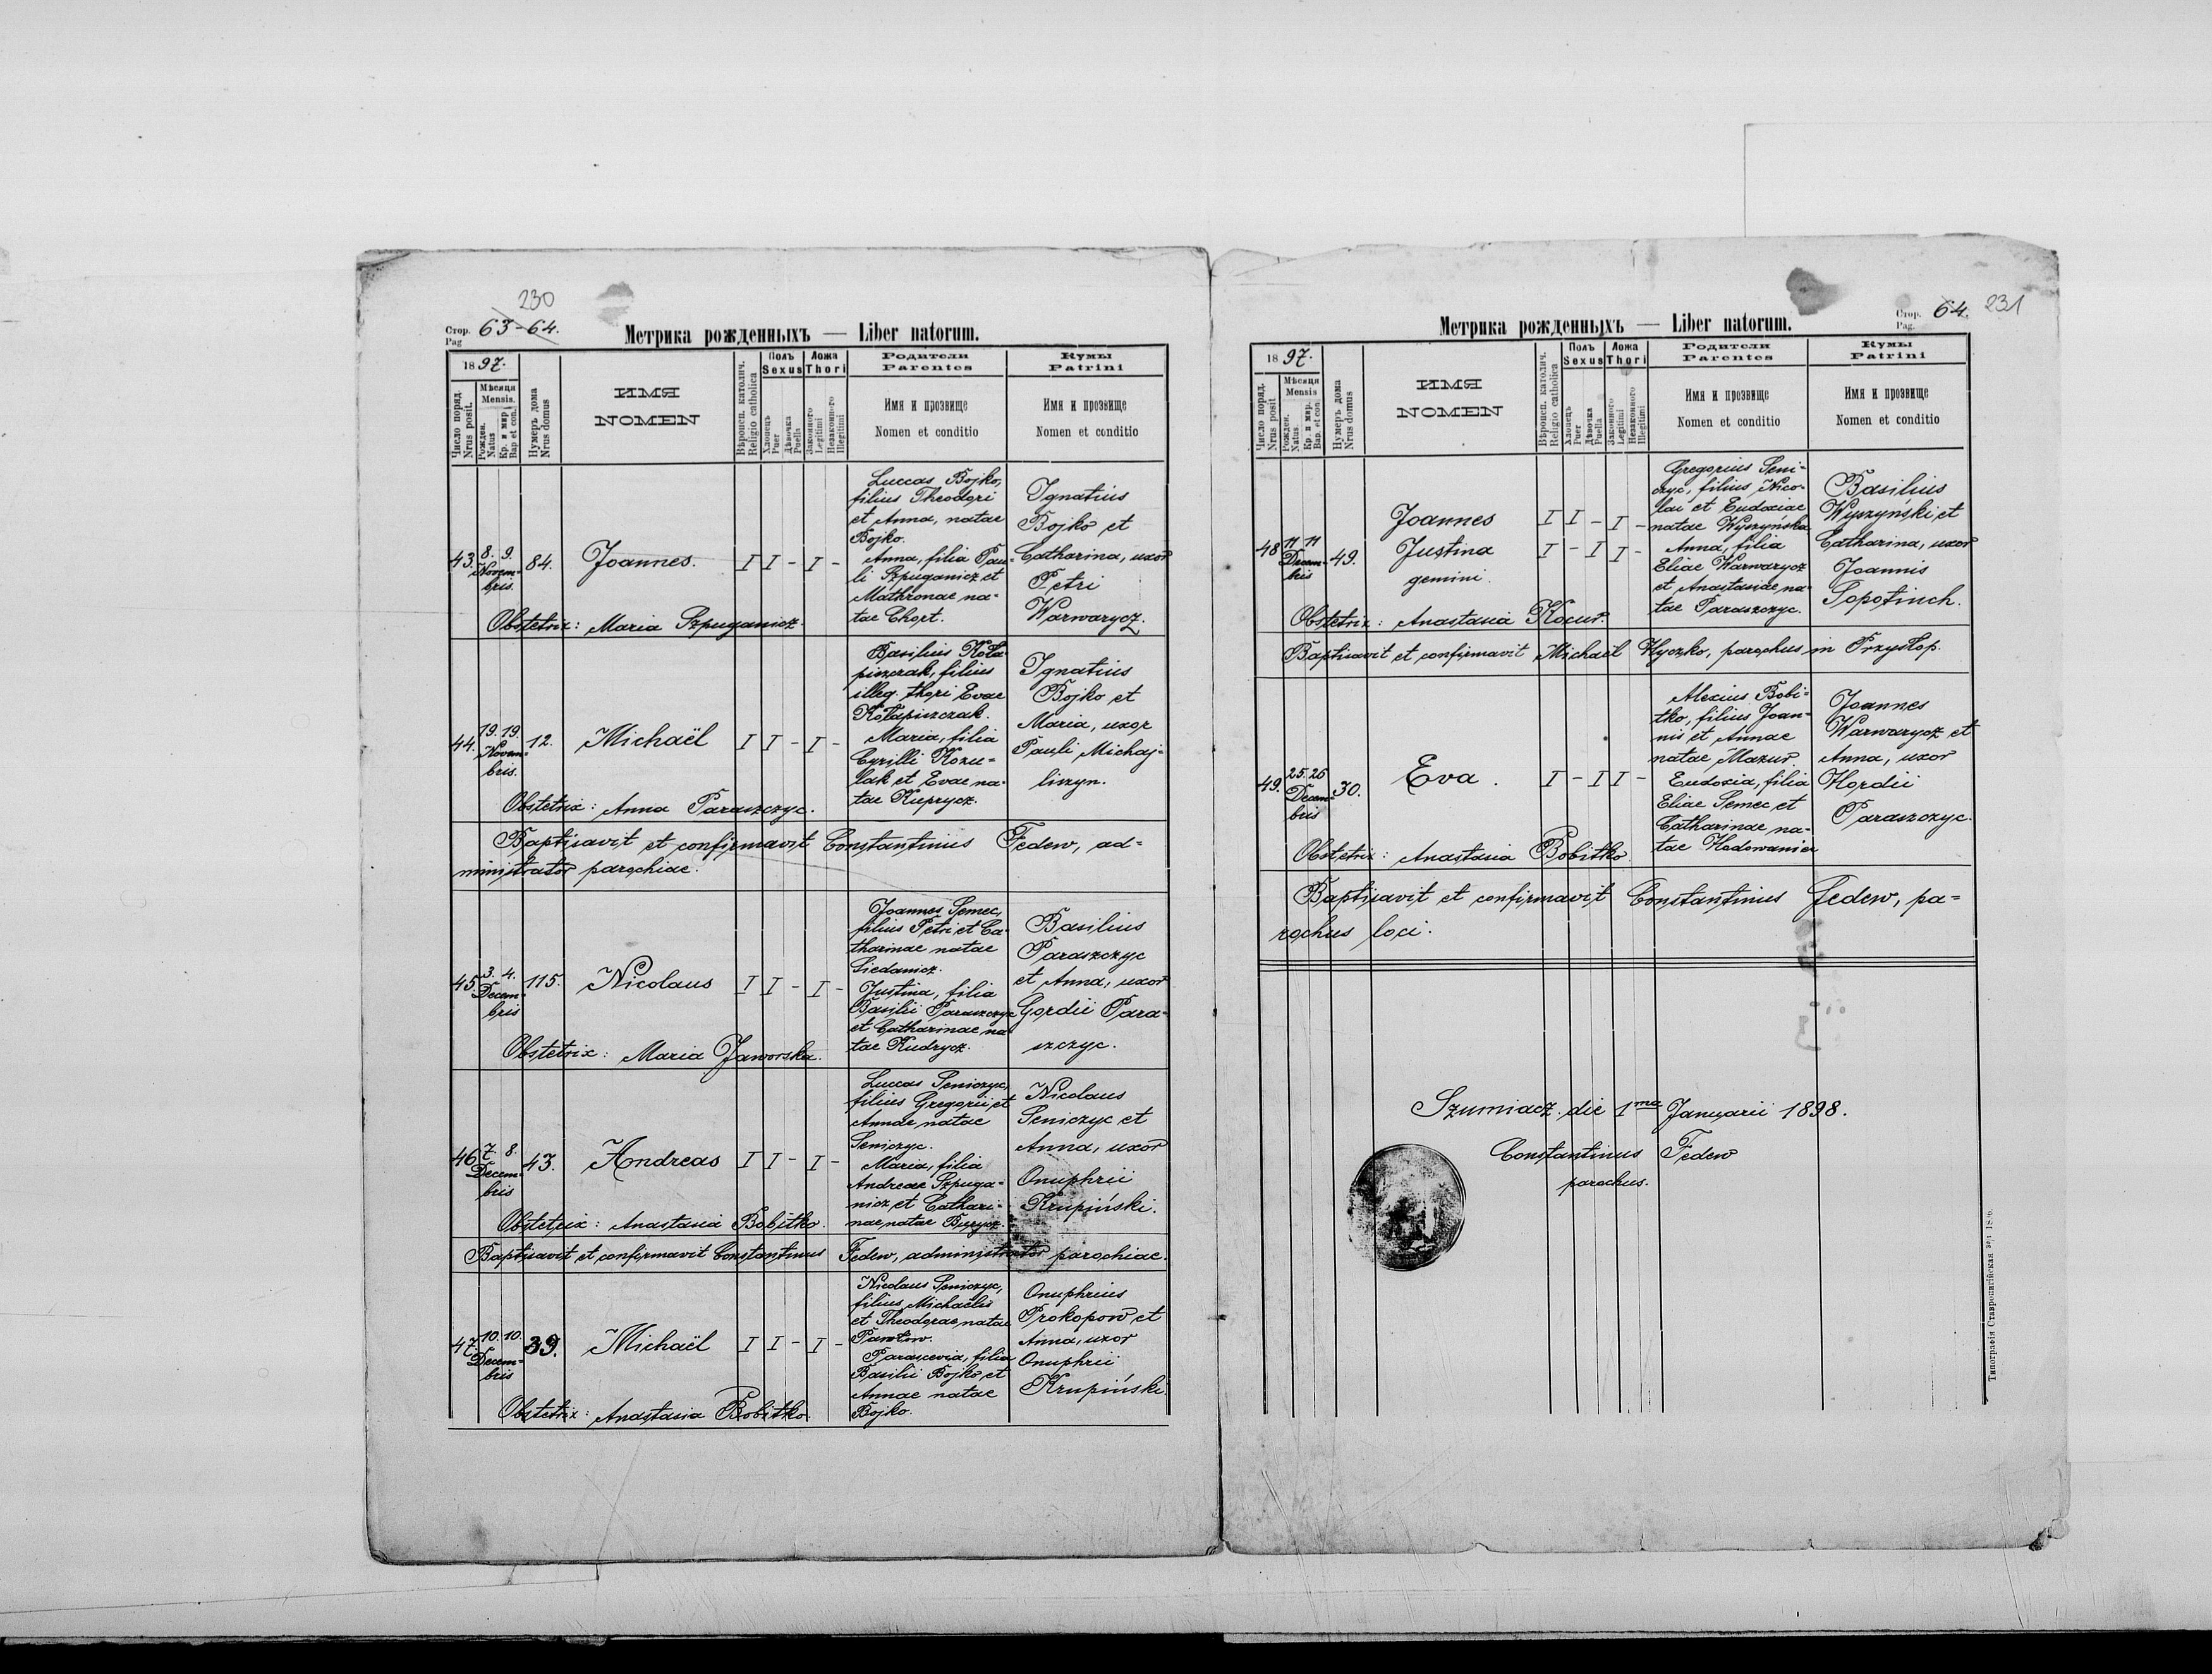 230
Стор. Pag 63-64.
Метрика рожденныхъ — Liber natorum.
1897.
Число поряд. Nrus posit.
Мѣсяця Mensis.
Рожден. Natus
Кр. и мир. Bap et con.
Нумеръ дома Nrus domus
ИМЯ
NOMEN
Вѣроисп. католич. Religio catholica
Полъ Sexus
Хлопецъ Puer
Дѣвочка Puella
Ложа Thori
Законного Legitimi
Незаконного Illegitimi
Родители
Parentes
Имя и прозвище
Nomen et conditio
Кумы
Patrini
Имя и прозвище
Nomen et conditio
43. 8. 9. Novem=
bris.
84. Joannes. I I - I -
Luccas Bojko,
filius Theodori
et Anna, natae
Bojko.
Anna, filia Pau=
li Szpuganicz et
Mathronae na=
tae Chort.
Ignatius
Bojko et
Catharina, uxor
Petri
Warwarycz.
Obstetrix: Maria Szpuganicz.
44. 19. 19. Novem=
bris.
12. Michaël I I - I -
Basilius Kołа=
piszczak, filius
illeg. thori Evae
Kołapiszczak.
Maria, filia
Cyrilli Kozu=
lak et Evae na=
tae Kuprycz.
Ignatius
Bojko et
Maria, uxor
Pauli Michaj=
liszyn.
Obstetrix: Anna Paraszczyc.
Baptisavit et confirmavit Constantinus Fedew, ad=
ministrator parochiae.
45. 3. 4. Decem=
bris
115. Nicolaus I I - I -
Joannes Semec,
filius Petri et Ca=
tharinae natae
Siedanicz.
Justina, filia
Basilii Paraszczyc
et Catharinae na=
tae Kudrycz.
Basilius
Paraszczyc
et Anna, uxor
Gordii Para=
szczyc.
Obstetrix: Maria Jaworska.
46. 7. 8. Decem=
bris
43. Andreas I I - I -
Luccas Seniczyc,
filius Gregorii et
Annae natae
Seniczyc.
Maria, filia
Andreae Szpuga=
nicz et Cathari=
nae natae Burycz.
Nicolaus
Seniczyc et
Anna, uxor
Onuphrii
Krupiński.
Obstetrix: Anastasia Bobitko.
Baptisavit et confirmavit Constantinus Fedew, administrator parochiae.
47. 10. 10. Decem=
bris
39. Michaël I I - I -
Nicolaus Seniczyc,
filius Michaëlis
et Theodorae natae
Pawłow.
Parascevia, filia
Basilii Bojko et
Annae natae
Bojko.
Onuphrius
Prokopow et
Anna, uxor
Onuphrii
Krupiński.
Obstetrix: Anastasia Bobitko.
Метрика рожденныхъ — Liber natorum.
Стор. Pag. 64. 231
1897.
Число поряд. Nrus posit
Мѣсяця Mensis
Рожден. Natus.
Кр. и мир. Bap. et con
Нумеръ дома Nrus domus
ИМЯ
NOMEN
Вѣроисп. католич. Religio catholica
Полъ Sexus
Хлопецъ Puer
Дѣвочка Puella
Ложа Thori
Законного Legitimi
Незаконного Illegitimi
Родители
Parentes
Имя и прозвище
Nomen et conditio
Кумы
Patrini
Имя и прозвище
Nomen et conditio
48 11 11 Decem=
bris
49. Joannes I I - I -
Justina I - I I -
gemini.
Gregorius Seni=
czyc, filius Nico=
lai et Eudociae
natae Wyszyńska
Anna, filia
Eliae Warwarycz
et Anastasiae na=
tae Paraszczyc.
Basilius
Wyszyński et
Catharina, uxor
Joannis
Sopotinch.
Obstetrix: Anastasia Kocur.
Baptisavit et confirmavit Michaël Hyczko, parochus in Przysłop.
49. 25. 26 Decem=
bris
30. Eva. I - I I -
Alexius Bobi=
tko, filius Joan=
nis et Annae
natae Mazur.
Eudoxia, filia
Eliae Semec et
Catharinae na=
tae Hodowaniec
Joannes
Warwarycz et
Anna, uxor
Hordii
Paraszczyc.
Obstetrix: Anastasia Bobitko.
Baptisavit et confirmavit Constantinus Fedew, pa=
rochus loci.
Szumiacz die 1ma Januarii 1898.
Constantinus Fedew
parochus.